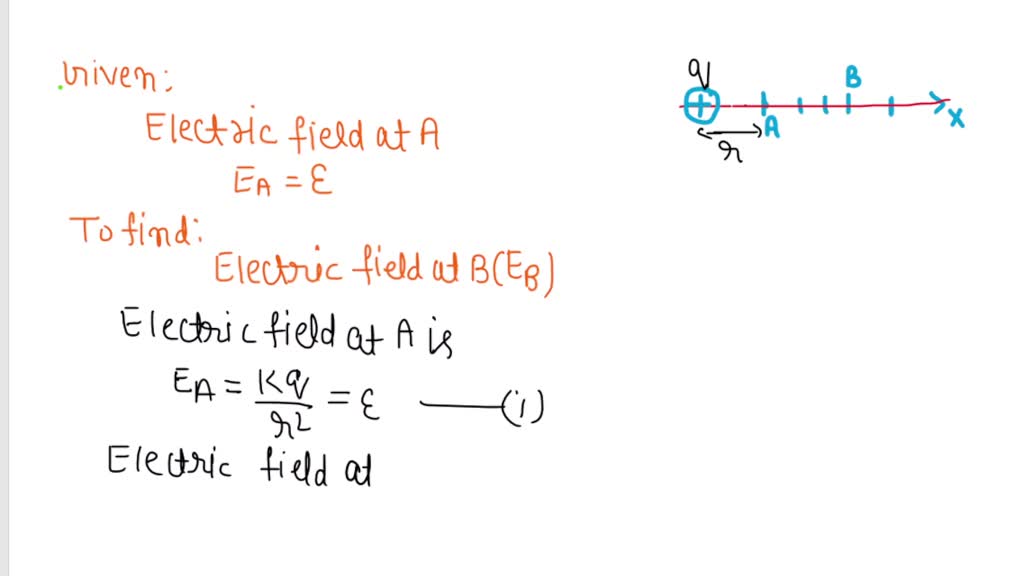 Given:
Electric field at A
E_A = ε
To find:
Electric field at B (E_B)
Electric field at A is
E_A = Kq/r² = ε —— (1)
Electric field at
q
+
A
B
X
r